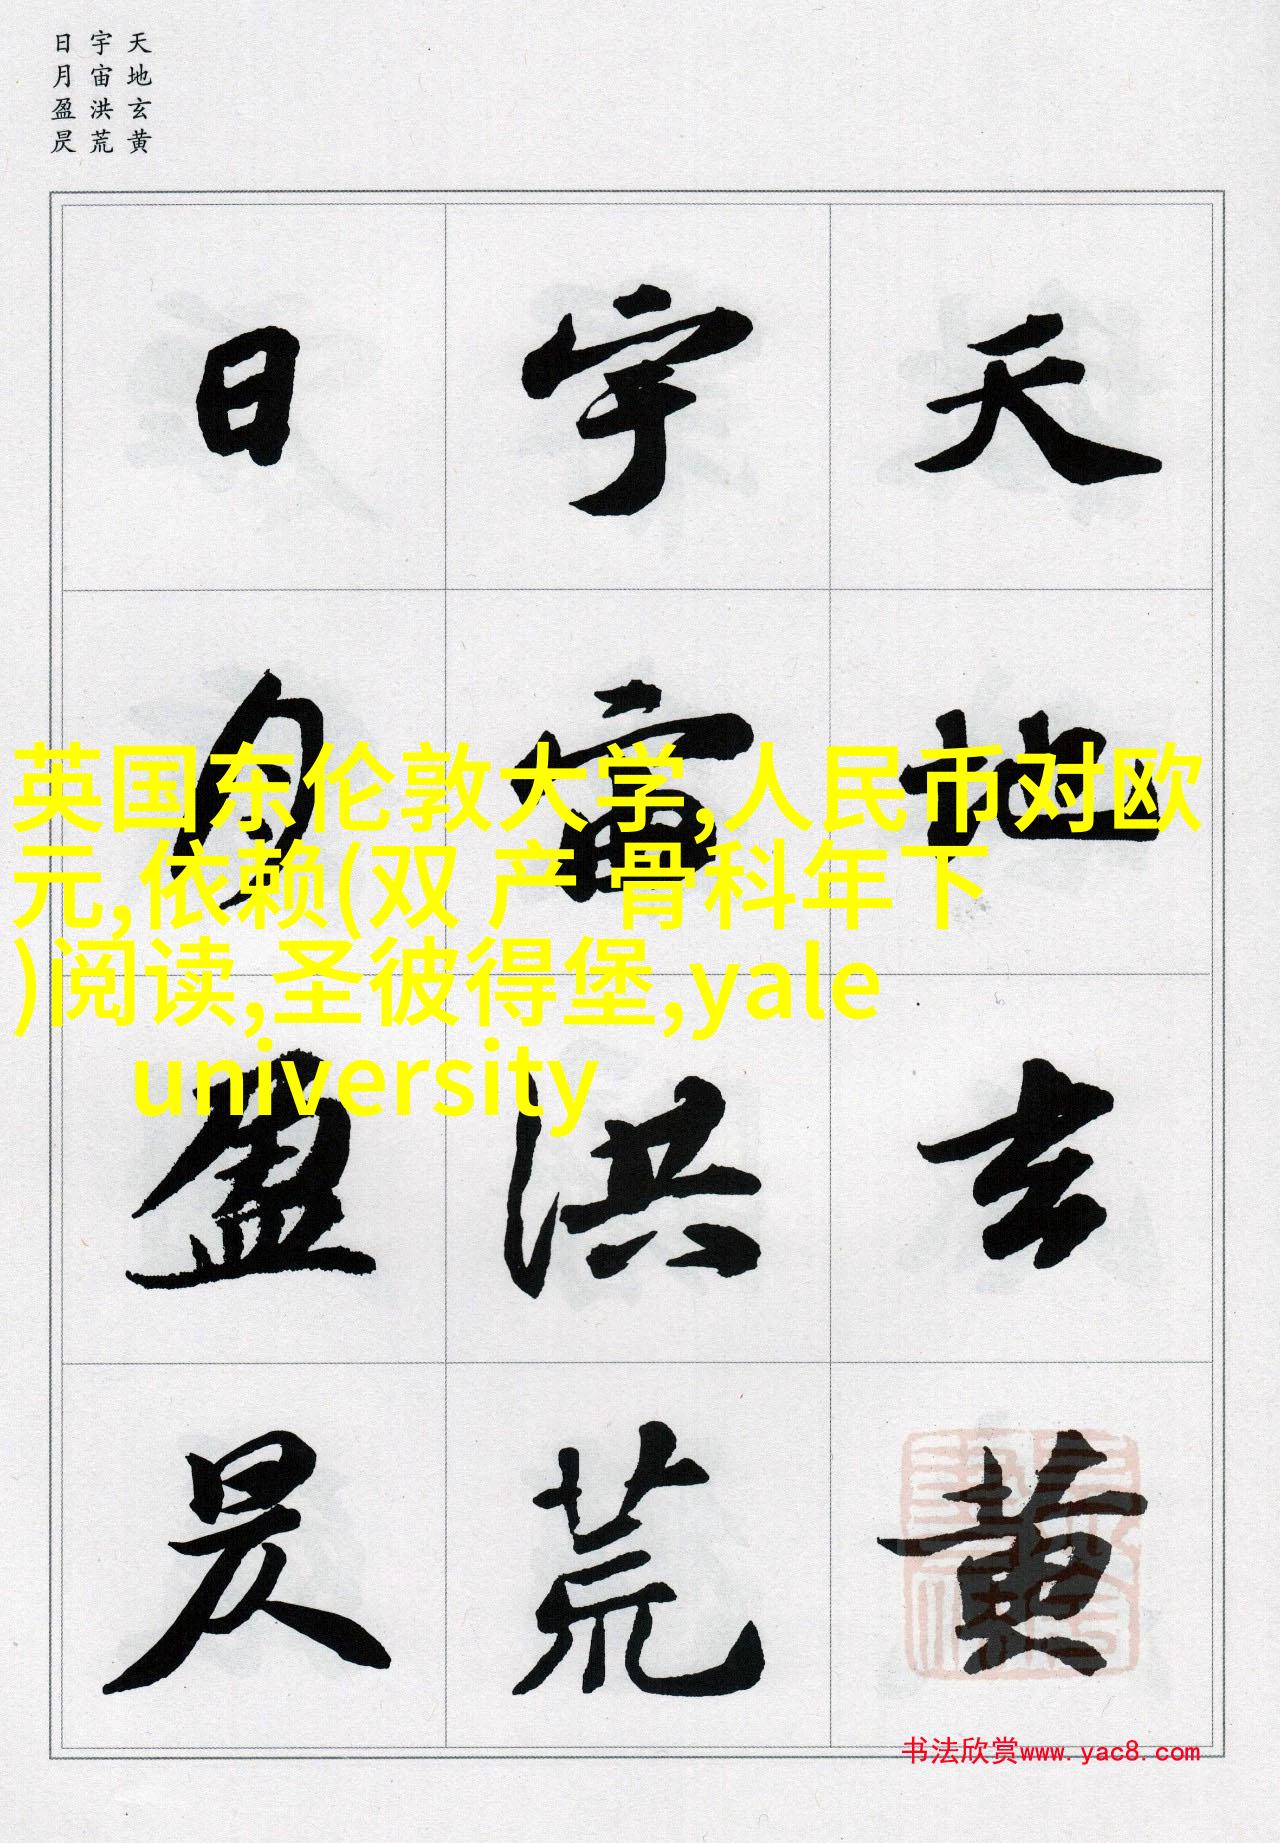 天地玄黄
宇宙洪荒
日月盈昃
天地玄黄
宇宙洪荒
日月盈昃
英国东伦敦大学,人民币对欧
元,依赖(双 产 骨科年下
)阅读,圣彼得堡,yale
university
书法欣赏www.yac8.com